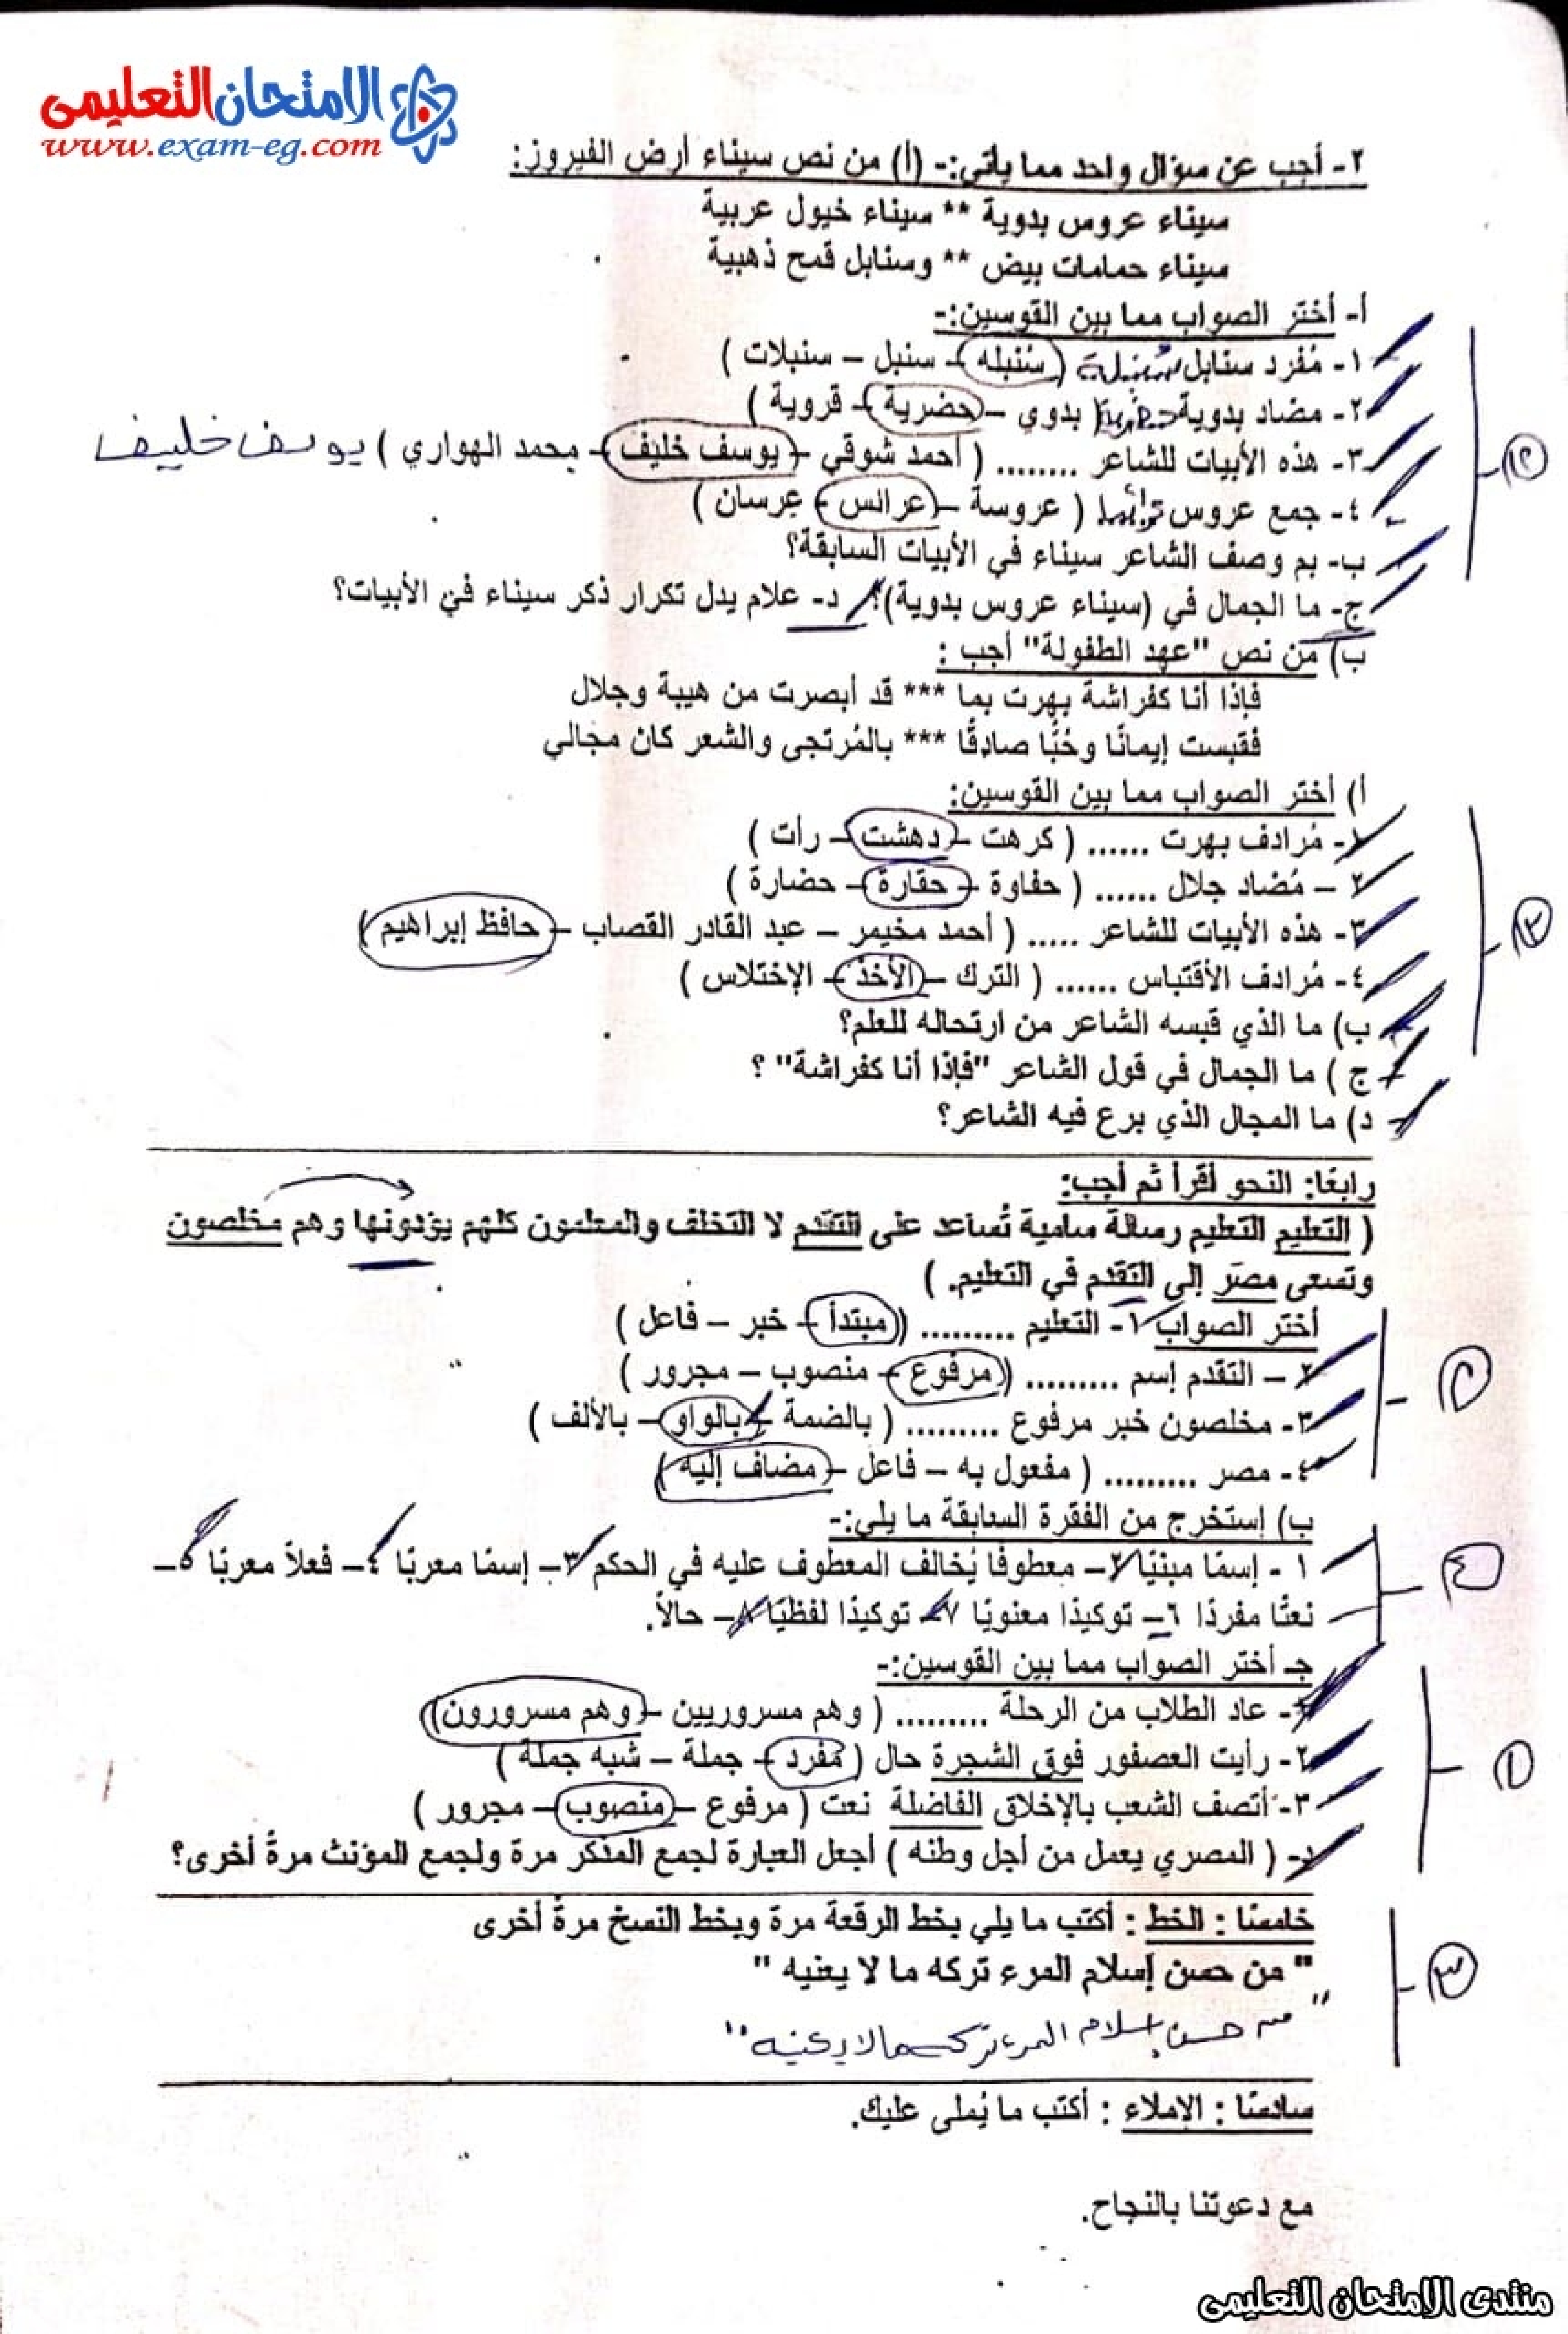 الامتحان التعليمى
www.exam-eg.com
٢- أجب عن سؤال واحد مما يأتي:- (أ) من نص سيناء أرض الفيروز:
سيناء عروس بدوية ** سيناء خيول عربية
سيناء حمامات بيض ** وسنابل قمح ذهبية
أ- أختر الصواب مما بين القوسين:-
١- مُفرد سنابل سُنبلة ( سُنبله – سنبل – سنبلات )
٢- مضاد بدوية حضرية ( بدوي – حضرية – قروية )
٣- هذه الأبيات للشاعر ........ ( أحمد شوقي – يوسف خليف – محمد الهواري ) يوسف خليف
٤- جمع عروس ( عروسة – عرائس – عرسان )
ب- بم وصف الشاعر سيناء في الأبيات السابقة؟
ج- ما الجمال في (سيناء عروس بدوية)؟ د- علام يدل تكرار ذكر سيناء في الأبيات؟
ب) من نص "عهد الطفولة" أجب :
فإذا أنا كفراشة بهرت بما *** قد أبصرت من هيبة وجلال
فقبست إيمانًا وحُبًّا صادقًا *** بالمُرتجى والشعر كان مجالي
أ) أختر الصواب مما بين القوسين:
١- مُرادف بهرت ...... ( كرهت – دهشت – رأت )
٢ – مُضاد جلال ...... ( حفاوة – حقارة – حضارة )
٣- هذه الأبيات للشاعر ..... ( أحمد مخيمر – عبد القادر القصاب – حافظ إبراهيم )
٤- مُرادف الأقتباس ...... ( الترك – الأخذ – الإختلاس )
ب) ما الذي قبسه الشاعر من ارتحاله للعلم؟
ج ) ما الجمال في قول الشاعر "فإذا أنا كفراشة" ؟
د) ما المجال الذي برع فيه الشاعر؟
١٢
١٢
رابعًا: النحو أقرأ ثم أجب:
( التعليم التعليم رسالة سامية تُساعد على التقدم لا التخلف والمعلمون كلهم يؤدونها وهم مخلصون
وتسعى مصر إلى التقدم في التعليم. )
أختر الصواب ١- التعليم ......... ( مبتدأ – خبر – فاعل )
٢ – التقدم إسم ......... ( مرفوع – منصوب – مجرور )
٣- مخلصون خبر مرفوع ......... ( بالضمة – بالواو – بالألف )
٤- مصر ......... ( مفعول به – فاعل – مضاف إليه )
٢
ب) إستخرج من الفقرة السابقة ما يلي:-
١ - إسمًا مبنيًا ٢– معطوفًا يُخالف المعطوف عليه في الحكم ٣– إسمًا معربًا ٤– فعلاً معربًا ٥–
نعتًا مفردًا ٦– توكيدًا معنويًا ٧– توكيدًا لفظيًا ٨– حالاً.
٤
جـ أختر الصواب مما بين القوسين:-
١- عاد الطلاب من الرحلة ......... ( وهم مسروريين – وهم مسرورون)
٢- رأيت العصفور فوق الشجرة حال ( مفرد – جملة – شبه جملة )
٣- أتصف الشعب بالإخلاق الفاضلة نعت ( مرفوع – منصوب – مجرور )
د- ( المصري يعمل من أجل وطنه ) أجعل العبارة لجمع المذكر مرة ولجمع المؤنث مرةً أخرى؟
١
خامسًا : الخط : أكتب ما يلي بخط الرقعة مرة وبخط النسخ مرةً أخرى
" من حسن إسلام المرء تركه ما لا يعنيه "
٣
" من حسن إسلام المرء تركه ما لا يعنيه "
سادسًا : الإملاء : أكتب ما يُملى عليك.
مع دعوتنا بالنجاح.
منتدى الامتحان التعليمى